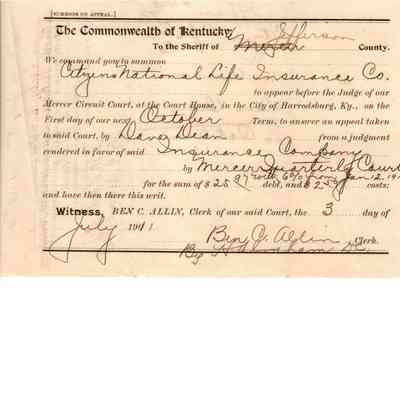 [SUMMONS ON APPEAL.]
The Commonwealth of Kentucky, Jefferson
To the Sheriff of Mercer County.
We command you to summon
Citizens National Life Insurance Co.
to appear before the Judge of our
Mercer Circuit Court, at the Court House, in the City of Harrodsburg, Ky., on the
First day of our next October Term, to answer an appeal taken
to said Court, by Dave Dean from a judgment
rendered in favor of said Insurance Company
by Mercer Quarterly Court
for the sum of $25.97 with 6% from Jan 12, 19 debt, and $2 costs:
and have then there this writ.
Witness, BEN C. ALLIN, Clerk of our said Court, the 3 day of
July 1911 Ben C. Allin Clerk.
By